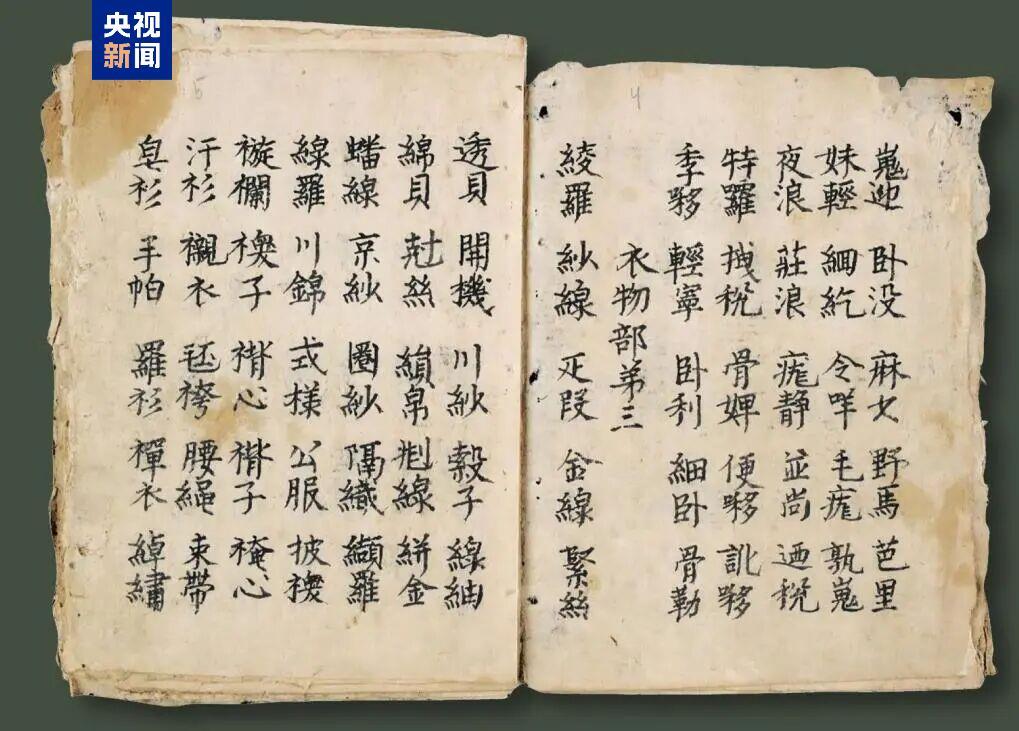 央视
新闻
4
嵬迎 卧没 麻女 野馬 芭里
妹輕 緬紇 令咩 毛痝 孰嵬
夜浪 莊浪 痝静 並尚 迺税
特羅 拽税 骨婢 便㖼 訛㖼
季㖼 輕寧 卧利 細卧 骨勒
衣物部弟三
綾羅 紗線 疋段 金線 緊絲
5
透貝 開機 川紗 縠子 線紬
綿貝 尅絲 絹帛 剋線 絣金
蟠線 京紗 圈紗 隔織 纈羅
線羅 川錦 式様 公服 披襖
襈襴 襖子 褙心 褙子 裺心
汗衫 襯衣 毡袴 腰繩 束帶
皂衫 手帕 羅衫 襌衣 綽繡